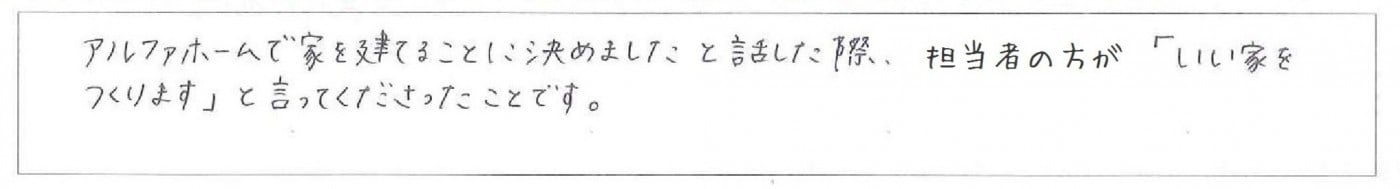 アルファホームで家を建てることに決めましたと話した際、担当者の方が「いい家を
つくります」と言ってくださったことです。